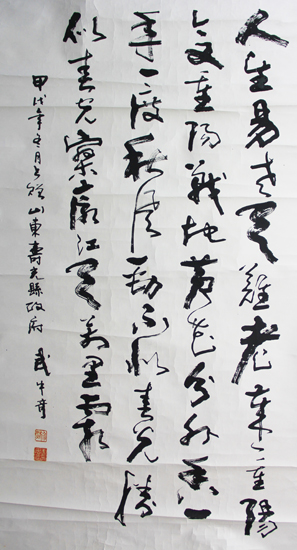 人生易老天難老歲々重陽
今又重陽戰地黃花分外香一
年一度秋風勁不似春光勝
似春光寥廓江天萬里霜
甲戌年冬月书贈山東壽光縣政府 武中奇